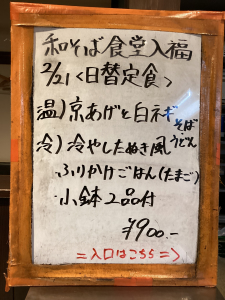 和そば食堂入福
2/21<日替定食<
温)京あげと白ネギ そば・
冷)冷やしたぬき風 うどん
ふりかけごはん(たまご)
・小鉢2品付
¥900.-
=入口はこちら=>